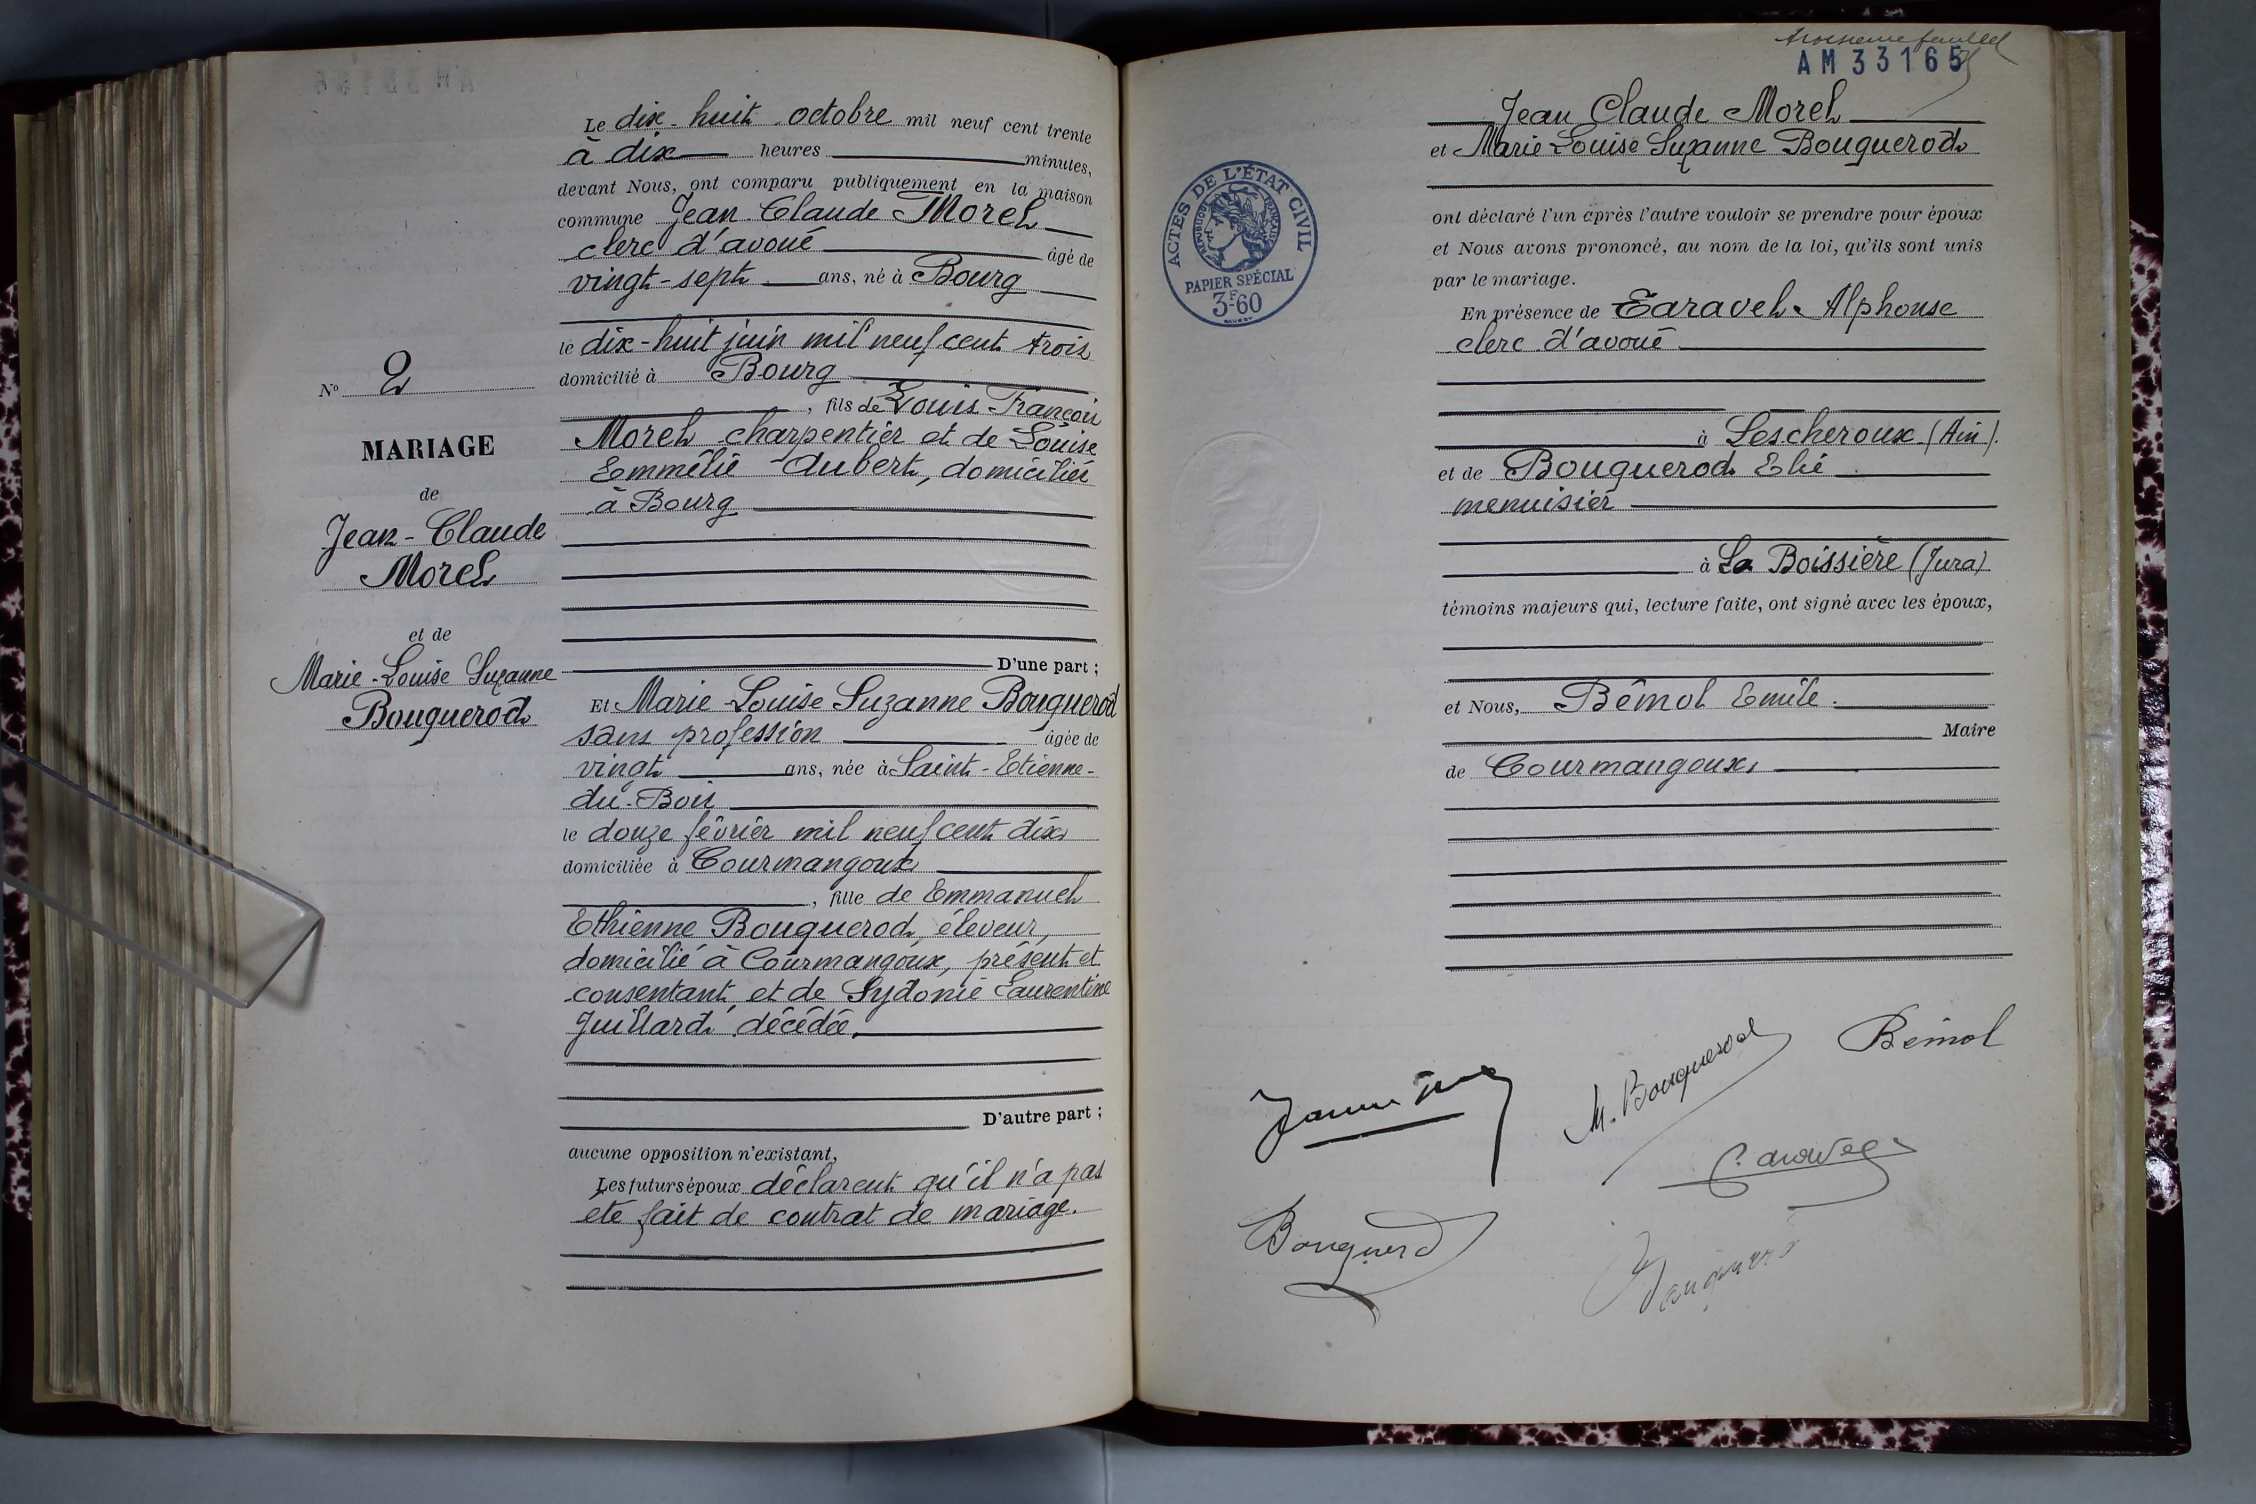 Le dix-huit octobre mil neuf cent trente
à dix heures minutes,
devant Nous, ont comparu publiquement en la maison
commune Jean-Claude Morel
clerc d'avoué âgé de
vingt-sept ans, né à Bourg
le dix-huit juin mil neuf cent trois
domicilié à Bourg
, fils de Louis François
Morel charpentier et de Louise
Emmélie Aubert, domiciliés
à Bourg
D'une part ;
Et Marie-Louise Suzanne Bouquerod
sans profession âgée de
vingt ans, née à Saint-Etienne-
du-Bois
le douze février mil neuf cent dix
domiciliée à Courmangoux
, fille de Emmanuel
Ethienne Bouquerod, éleveur,
domicilié à Courmangoux, présent et
consentant et de Sydonie Laurentine
Juillard, décédée.
D'autre part ;
aucune opposition n'existant,
Les futurs époux déclarent qu'il n'a pas
été fait de contrat de mariage.
N° 2
MARIAGE
de
Jean-Claude
Morel
et de
Marie-Louise Suzanne
Bouquerod
troisième feuillet
AM 33165
Jean Claude Morel
et Marie Louise Suzanne Bouquerod
ont déclaré l'un après l'autre vouloir se prendre pour époux
et Nous avons prononcé, au nom de la loi, qu'ils sont unis
par le mariage.
En présence de Caravel Alphonse
clerc d'avoué
à Lescheroux (Ain).
et de Bouquerod Elie
menuisier
à La Boissière (Jura)
témoins majeurs qui, lecture faite, ont signé avec les époux,
et Nous, Bémol Emile.
Maire
de Courmangoux
ACTES DE L'ÉTAT CIVIL
RÉPUBLIQUE FRANÇAISE
PAPIER SPÉCIAL
3F60
M. Bouquerod
Bémol
Caravel
Bouquerod
Bouquerod